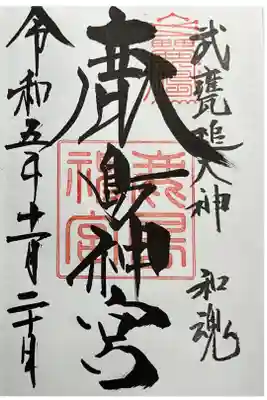 武甕槌大神 和魂
鹿島神宮
鹿島
神宮
令和五年十一月二十日